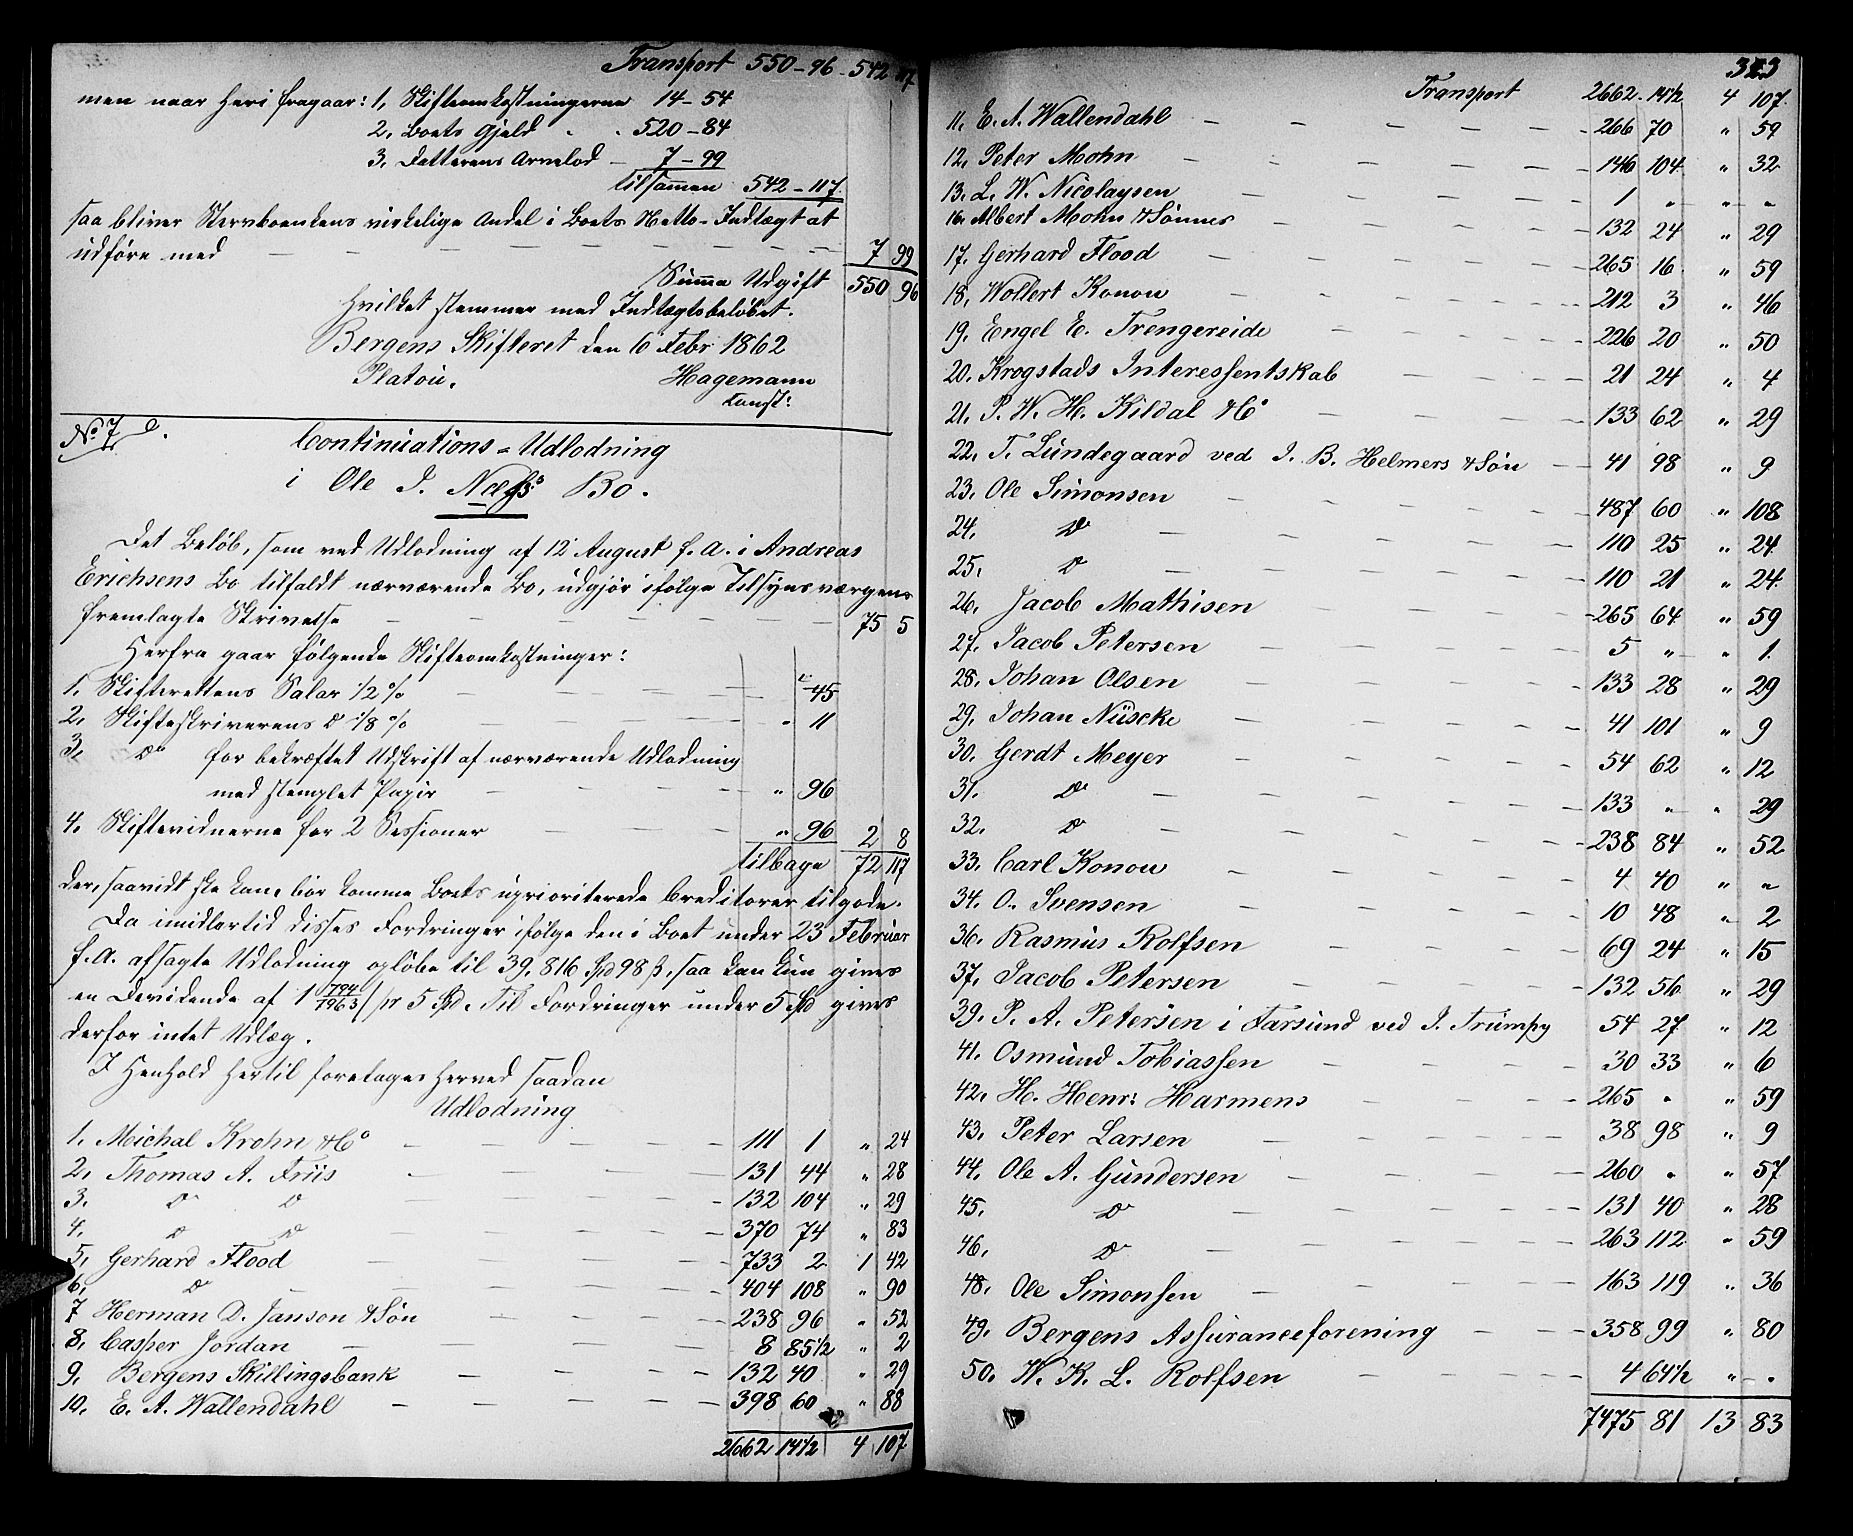 Transport 550-96-542 117
men naar heri fragaar: 1, Skifteomkostningerne 14-54
2, Boets Gjeld - - 520-84
3, Datterens Arvelod - 7-99
tilsammen 542-117.
saa bliver Stervboenkens virkelige Andel i Boets Netto-Indtægt at
udføre med - - - - 7 99
Summa Udgift 550 96
hvilket stemmer med Indtægtsbeløbet.
Bergens Skifteret den 6 Febr 1862
Platou. Hagemann
Const:
No. 7
Continuations-Udlodning
i Ole J. Næss's Bo.
Det Beløb, som ved Udlodning af 12 August f. A. i Andreas
Erichsens Bo tilfaldt nærværende Bo, udgjør ifølge Tilsynsværgens
fremlagte Skrivelse - - - 75 5
Herfra gaar følgende Skifteomkostninger:
1. Skifterettens Salar 1/2 % - - " 45
2, Skifteskriverens do 1/8 % - - " 11
3, do for bekræftet Udskrift af nærværende Udlodning
med stemplet Papir - - " 96
4. Skiftevidnerne for 2 Sessioner - - " 96 2 8
tilbage 72 117
der, saavidt ske kan, bør komme Boets uprioriterede Creditorer tilgode.
Da imidlertid disses Fordringer ifølge den i Boet under 23 Februar
f. A. afsagte Udlodning opløbe til 39,816 Spd 98 ß, saa kan kun gives
en Devidende af 1 794/7963 ß pr 5 Spd. Til Fordringer under 5 Spd gives
derfor intet Udlæg.
I Henhold hertil foretages herved saadan
Udlodning
1. Michal Krohn & Co - - 111 1 " 24
2, Thomas A. Friis - - 131 44 " 28
3. do do - - 132 104 " 29
4. do do - - 370 74 " 83
5, Gerhard Flood - - 733 2 1 42
6, do - - 404 108 " 90
7 Herman D. Janson & Søn - - 238 96 " 52
8. Casper Jordan - - 8 85 1/2 " 2
9, Bergens Skillingsbank - - 132 40 " 29
10, E. A. Wallendahl - - 398 60 " 88
2662 14 1/2 4 107
Transport 2662. 14 1/2 4 107.
11. E. A. Wallendahl - - 266 70 " 59
12, Peter Mohn - - 146 104 " 32
13. L. W. Nicolaysen - - 1 " " "
16 Albert Mohn & Sønner - - 132 24 " 29
17, Gerhard Flood - - 265 16 " 59
18, Wollert Konow - - 212 3 " 46
19, Engel E. Trengereide - - 226 20 " 50
20. Krogstads Interessentskab - - 21 24 " 4
21, P. W. H. Kildal & Co - - 133 62 " 29
22, T. Lundegaard ved J. B. Helmers & Søn - - 41 98 " 9
23, Ole Simonsen - - 487 60 " 108
24. do - - 110 25 " 24
25, do - - 110 21 " 24
26, Jacob Mathisen - - 265 64 " 59
27, Jacob Petersen - - 5 " " 1.
28. Johan Olsen - - 133 28 " 29
29, Johan Nüscke - - 41 101 " 9
30. Gerdt Meyer - - 54 62 " 12
31. do - - 133 " " 29
32. do - - 238 84 " 52
33, Carl Konow - - 4 40 " "
34. O. Svensen - - 10 48 " 2
36. Rasmus Rolfsen - - 69 24 " 15
37, Jacob Petersen - - 132 56 " 29
39, P. A. Petersen i Farsund ved J. Trümpy 54 27 " 12
41. Osmund Tobiassen - - 30 33 " 6
42, H. Henr: Harmens - - 265 " " 59
43, Peter Larsen - - 38 98 " 9
44. Ole A. Gundersen - - 260 " " 57
45, do - - 131 40 " 28
46, do - - 263 112 " 59
48. Ole Simonsen - - 163 119 " 36
49. Bergens Assuranceforening - - 358 99 " 80
50. W. K. L. Rolfsen - - 4 64 1/2 " "
7475 81 13 83